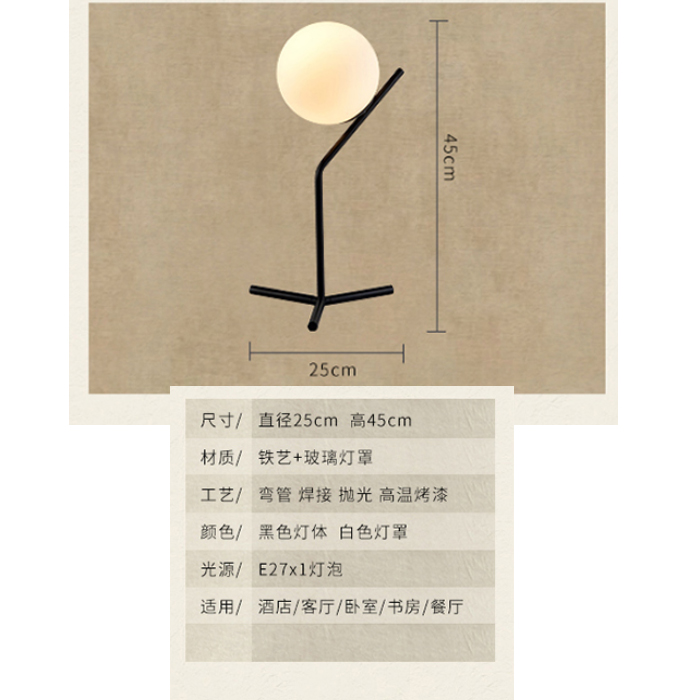 45cm
25cm
尺寸/ 直径25cm 高45cm
材质/ 铁艺+玻璃灯罩
工艺/ 弯管 焊接 抛光 高温烤漆
颜色/ 黑色灯体 白色灯罩
光源/ E27x1灯泡
适用/ 酒店/客厅/卧室/书房/餐厅